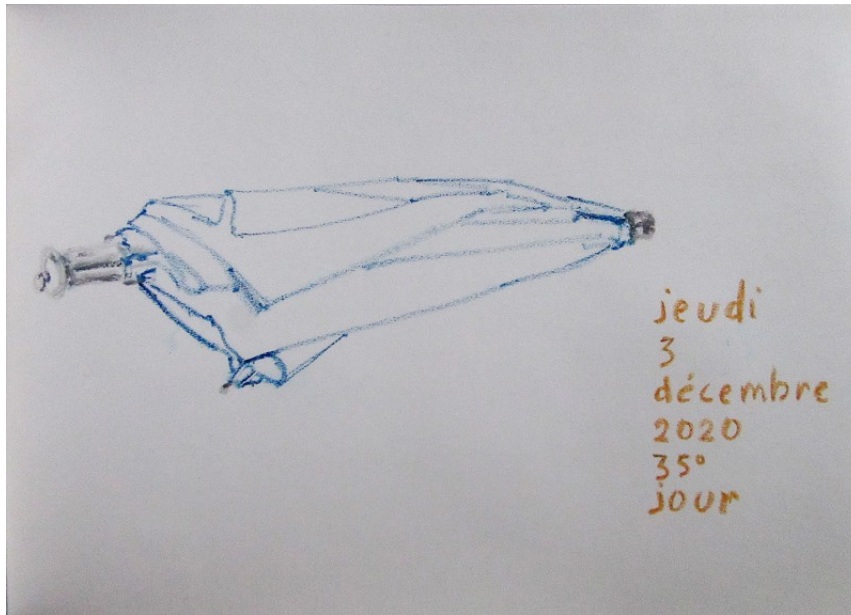 jeudi
3
décembre
2020
35°
jour